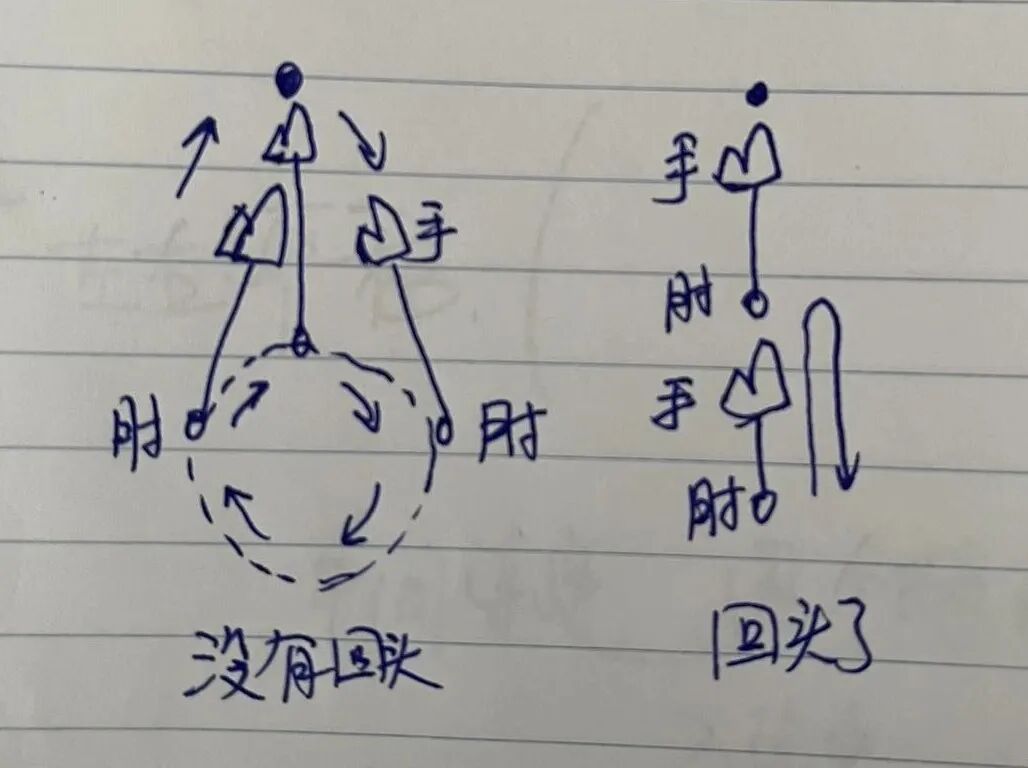 手
手
肘
手
肘
肘
肘
没有回头
回头了